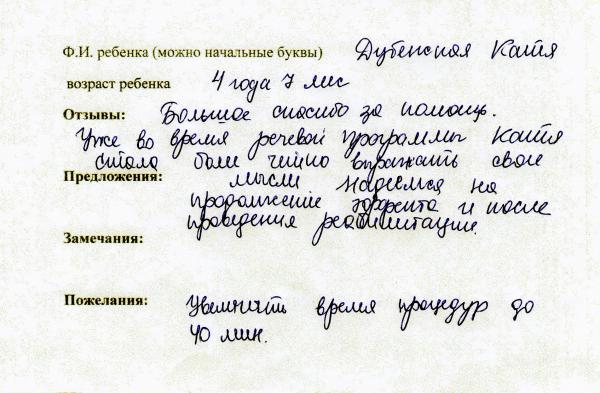 Ф.И. ребенка (можно начальные буквы) Дубенская Катя
возраст ребенка 4 года 7 мес
Отзывы: Большое спасибо за помощь.
Уже во время речевой программы Катя
стала более чётко выражать свои
Предложения: мысли. Надеемся на
продолжение эффекта и после
проведения реабилитации.
Замечания:
Пожелания: Увеличить время процедур до
40 мин.